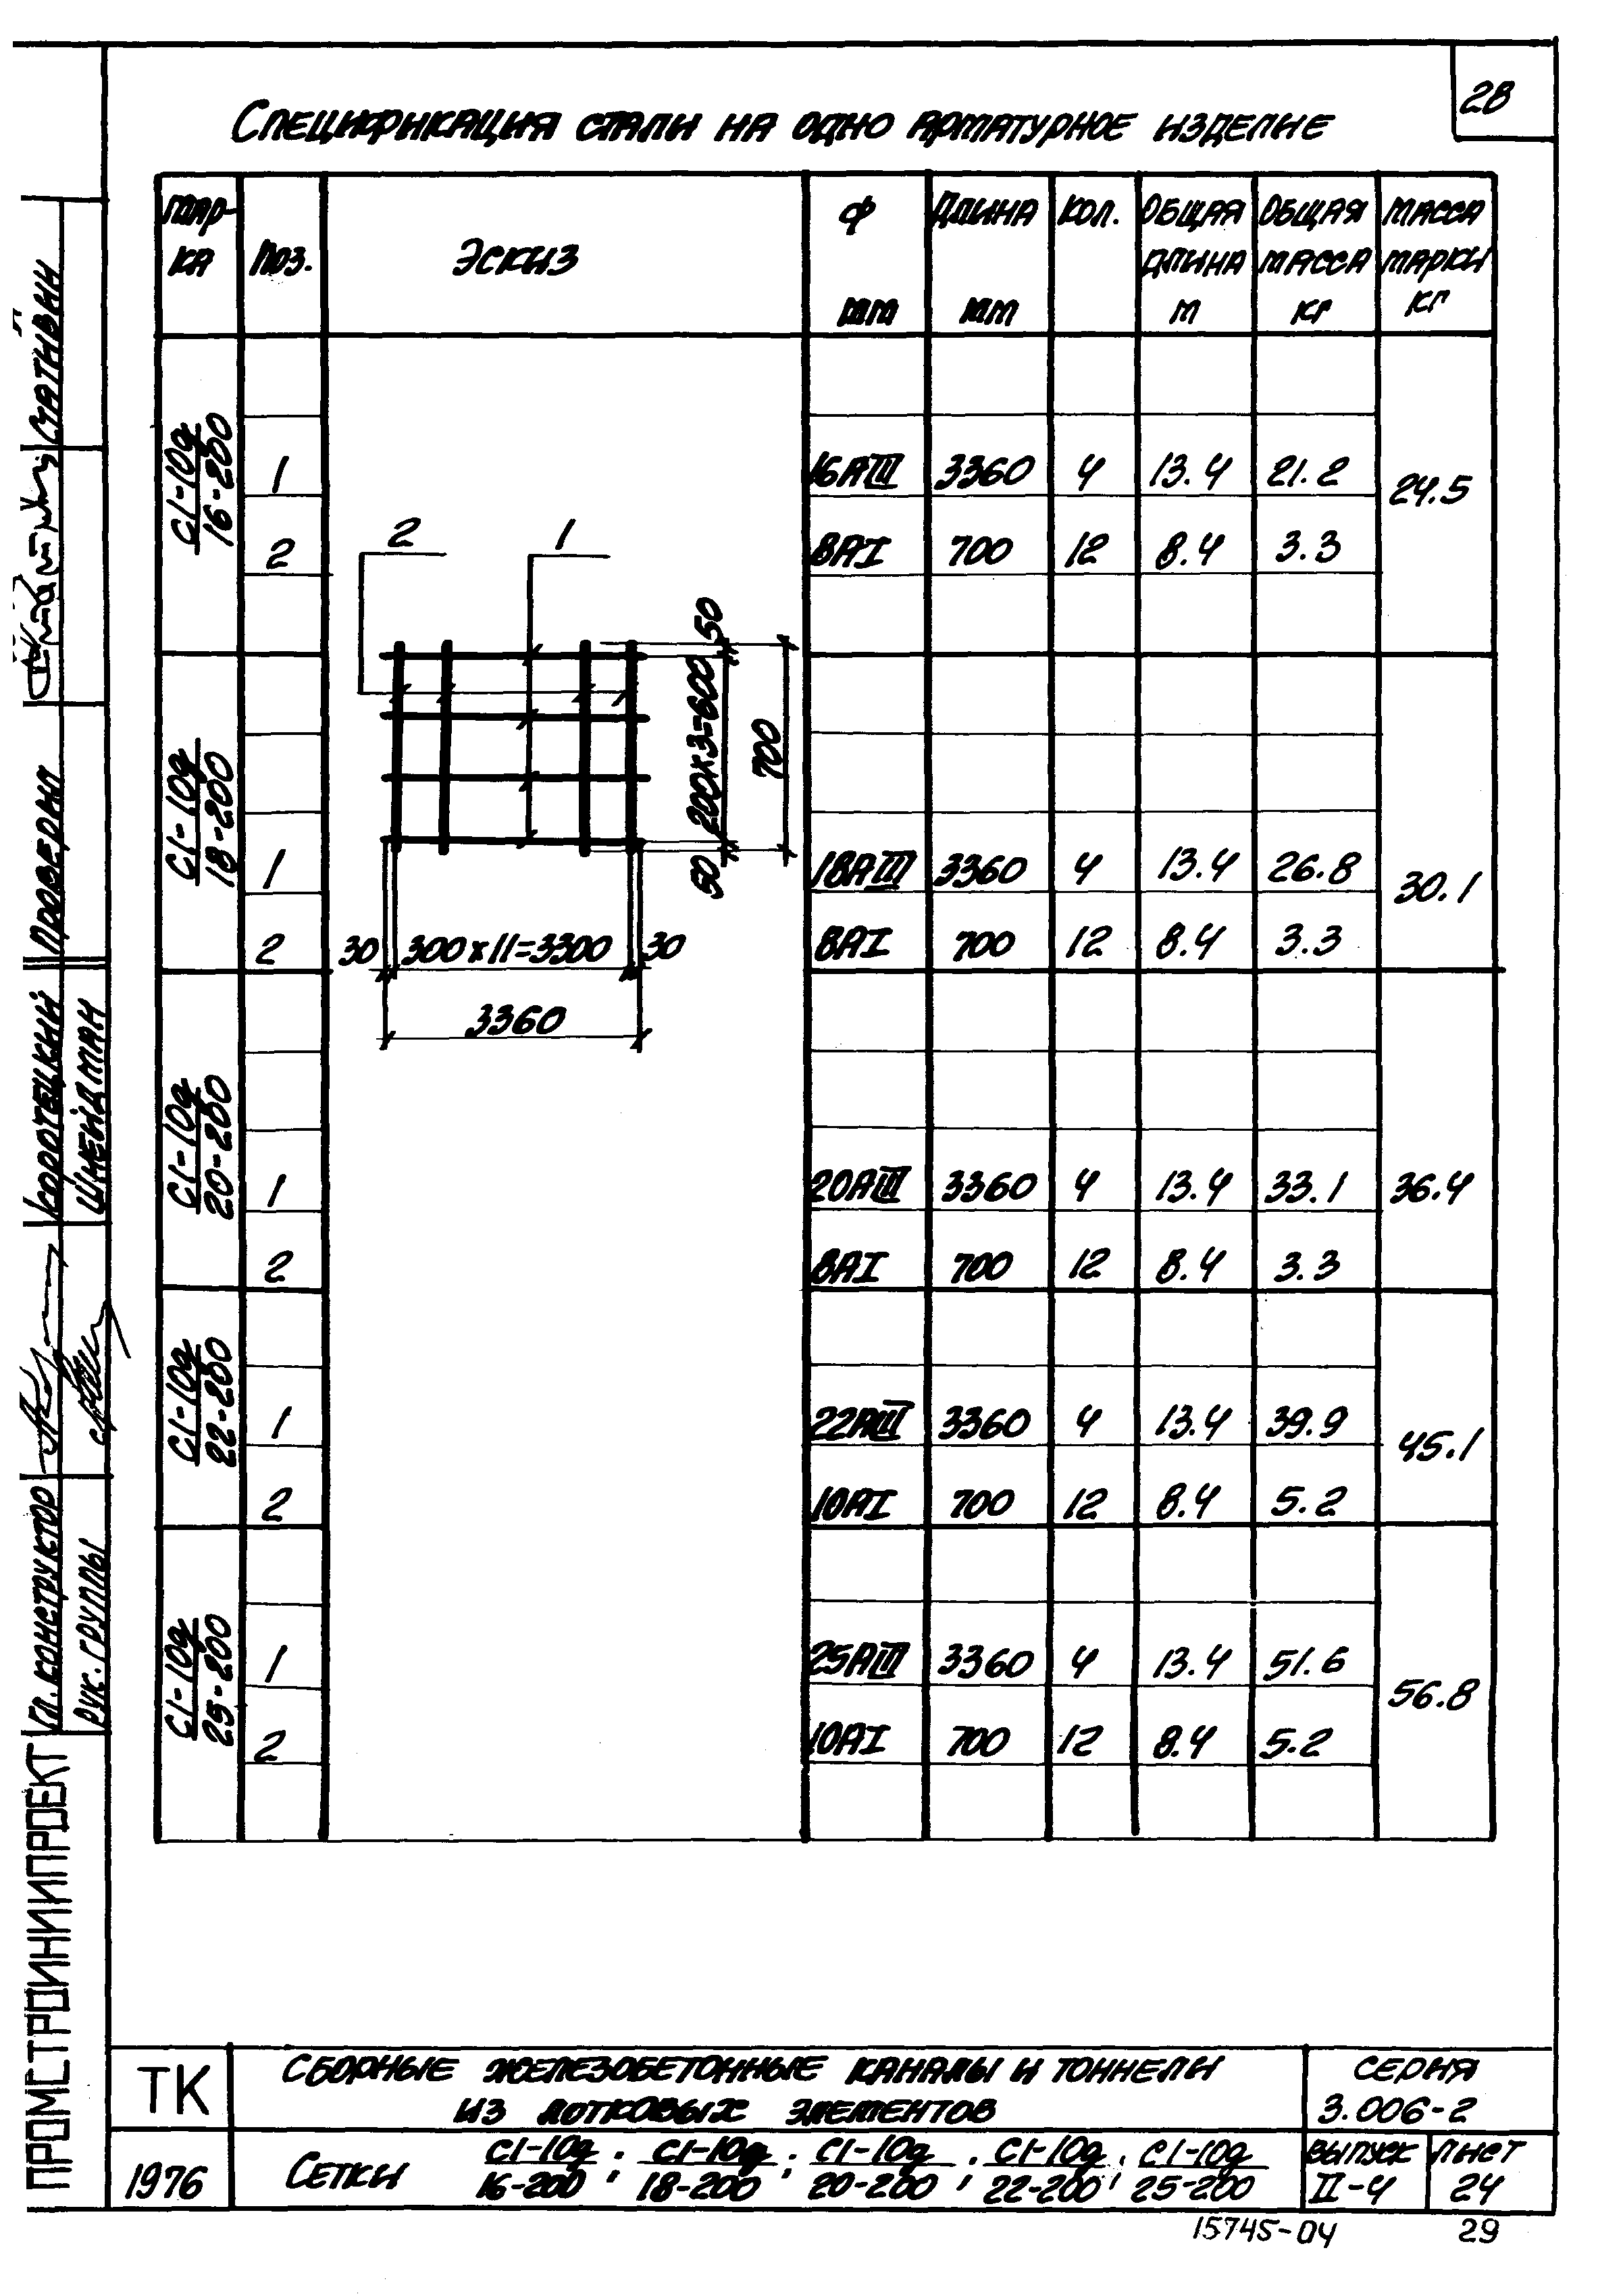 28
Спецификация стали на одно арматурное изделие
Мар-
ка
Поз.
Эскиз
Ф
мм
Длина
мм
Кол.
Общая
длина
м
Общая
масса
кг
Масса
марки
кг
С1-10д
16-200
1 16АIII 3360 4 13.4 21.2
24.5
2 8АI 700 12 8.4 3.3
С1-10д
18-200
1 18АIII 3360 4 13.4 26.8
30.1
2 8АI 700 12 8.4 3.3
С1-10д
20-200
1 20АIII 3360 4 13.4 33.1 36.4
2 8АI 700 12 8.4 3.3
С1-10д
22-200
1 22АIII 3360 4 13.4 39.9
45.1
2 10АI 700 12 8.4 5.2
С1-10д
25-200
1 25АIII 3360 4 13.4 51.6
56.8
2 10АI 700 12 8.4 5.2
2
1
50
200х3=600
50
700
30 300х11=3300 30
3360
ПРОМСТРОЙНИИПРОЕКТ
Гл. конструктор
Рук. группы
Коротецкий
Шнейдман
Проверил
ТК
1976
Сборные железобетонные каналы и тоннели
из лотковых элементов
Серия
3.006-2
Сетки С1-10д/16-200, С1-10д/18-200, С1-10д/20-200, С1-10д/22-200, С1-10д/25-200
Выпуск
II-4
Лист
24
15745-04
29